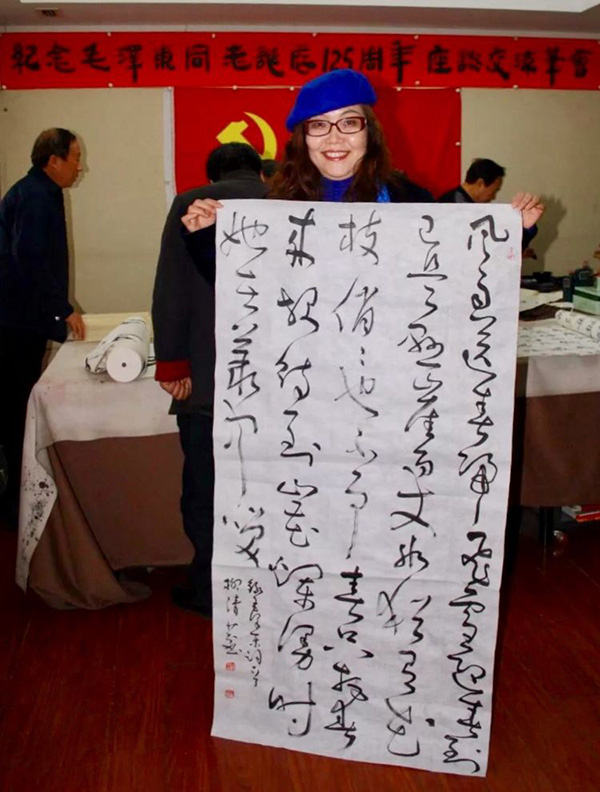 纪念毛澤東同志誕辰125周年 座談交流筆會
风雨送春归飛雪迎春到
已是悬崖百丈冰犹有花
枝俏俏也不争春只把春
来报待到山花烂漫时
她在丛中笑
柳清